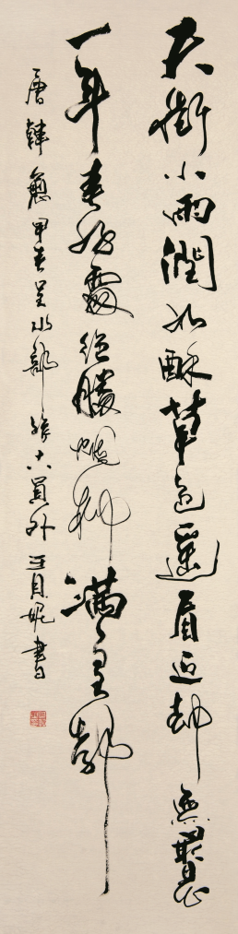 天街小雨潤如酥草色遥看近却無最是
一年春好處絕勝煙柳滿皇都
唐韓愈早春呈水部張十八員外 書